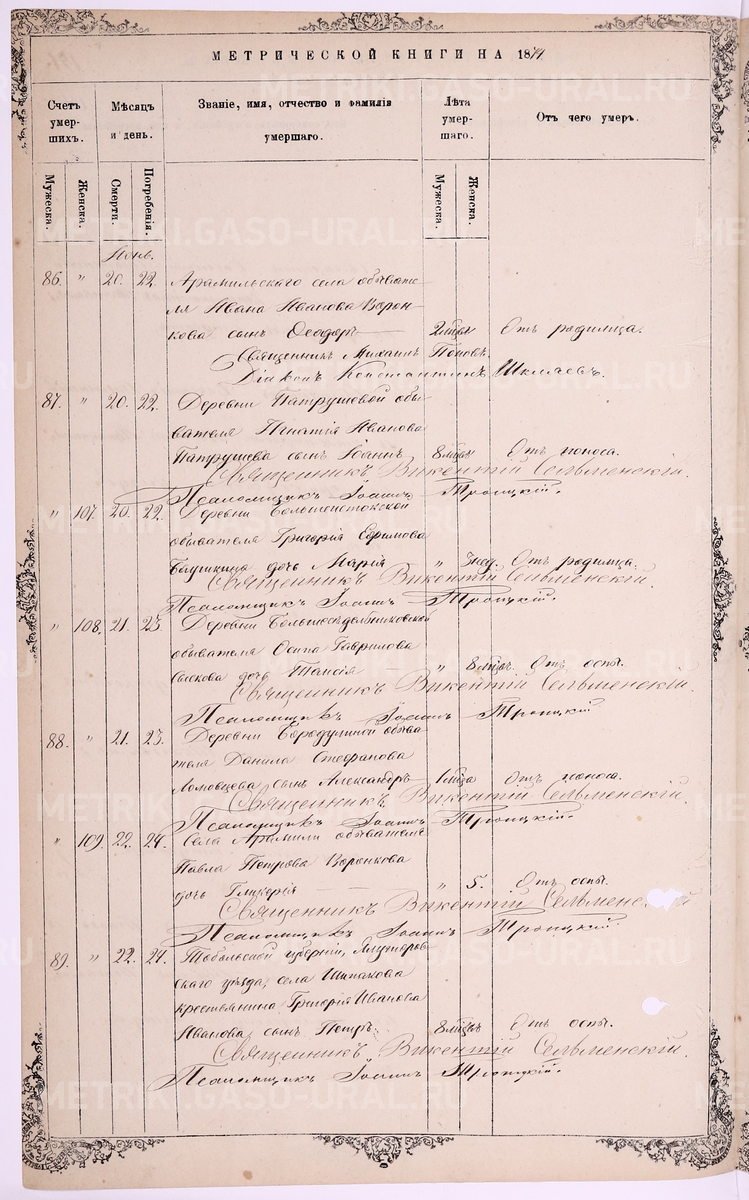 МЕТРИЧЕСКОЙ КНИГИ НА 1879.
Счетъ умер-шихъ.
Мѣсяцъ и день.
Званіе, имя, отчество и фамилія умершаго.
Лѣта умер-шаго.
Отъ чего умеръ.
Мужеска.
Женска.
Смерти.
Погребенія.
Мужеска.
Женска.
86. " 20. 22. Арамильскаго села обывате-
ля Ивана Иванова Ворон-
кова сынъ Ѳеодоръ 2 мѣсц Отъ родимца.
Священникъ Михаилъ Поповъ.
Діаконъ Константинъ Шкляевъ.
87. " 20. 22. Деревни Патрушевой обы-
вателя Игнатія Иванова
Патрушева сынъ Іоаннъ 8 мѣсц Отъ поноса.
Священникъ Викентій Сельменскій.
Псаломщикъ Іоаннъ Троицкій.
" 107. 20. 22. Деревни Большеистокской
обывателя Григорія Ефимова
дочь Марія " 3 нед. Отъ родимца.
Священникъ Викентій Сельменскій.
Псаломщикъ Іоаннъ Троицкій.
" 108. 21. 23. Деревни
обывателя Осипа Гаврилова
дочь Таисія " 8 мѣсц. Отъ оспы.
Священникъ Викентій Сельменскій.
Псаломщикъ Іоаннъ Троицкій
88. " 21. 23. Деревни Бородулиной обыва-
теля Данила Стефанова
сынъ Александръ 1 мѣсца Отъ поноса.
Священникъ Викентій Сельменскій.
Псаломщикъ Іоаннъ Троицкій.
" 109. 22. 24. Села Арамили обывателя
Павла Петрова Воронкова
дочь Гликерія " 5. Отъ оспы.
Священникъ Викентій
Псаломщикъ Іоаннъ Троицкій.
89. " 22. 24. Тобольской губерніи, Ялуторов-
скаго уѣзда, села Шипакова
крестьянина Григорія Иванова
Иванова сынъ Петръ 8 мѣсцъ Отъ оспы.
Священникъ Викентій Сельменскій.
Псаломщикъ Іоаннъ Троицкій.
METRIKI.GASO-URAL.RU